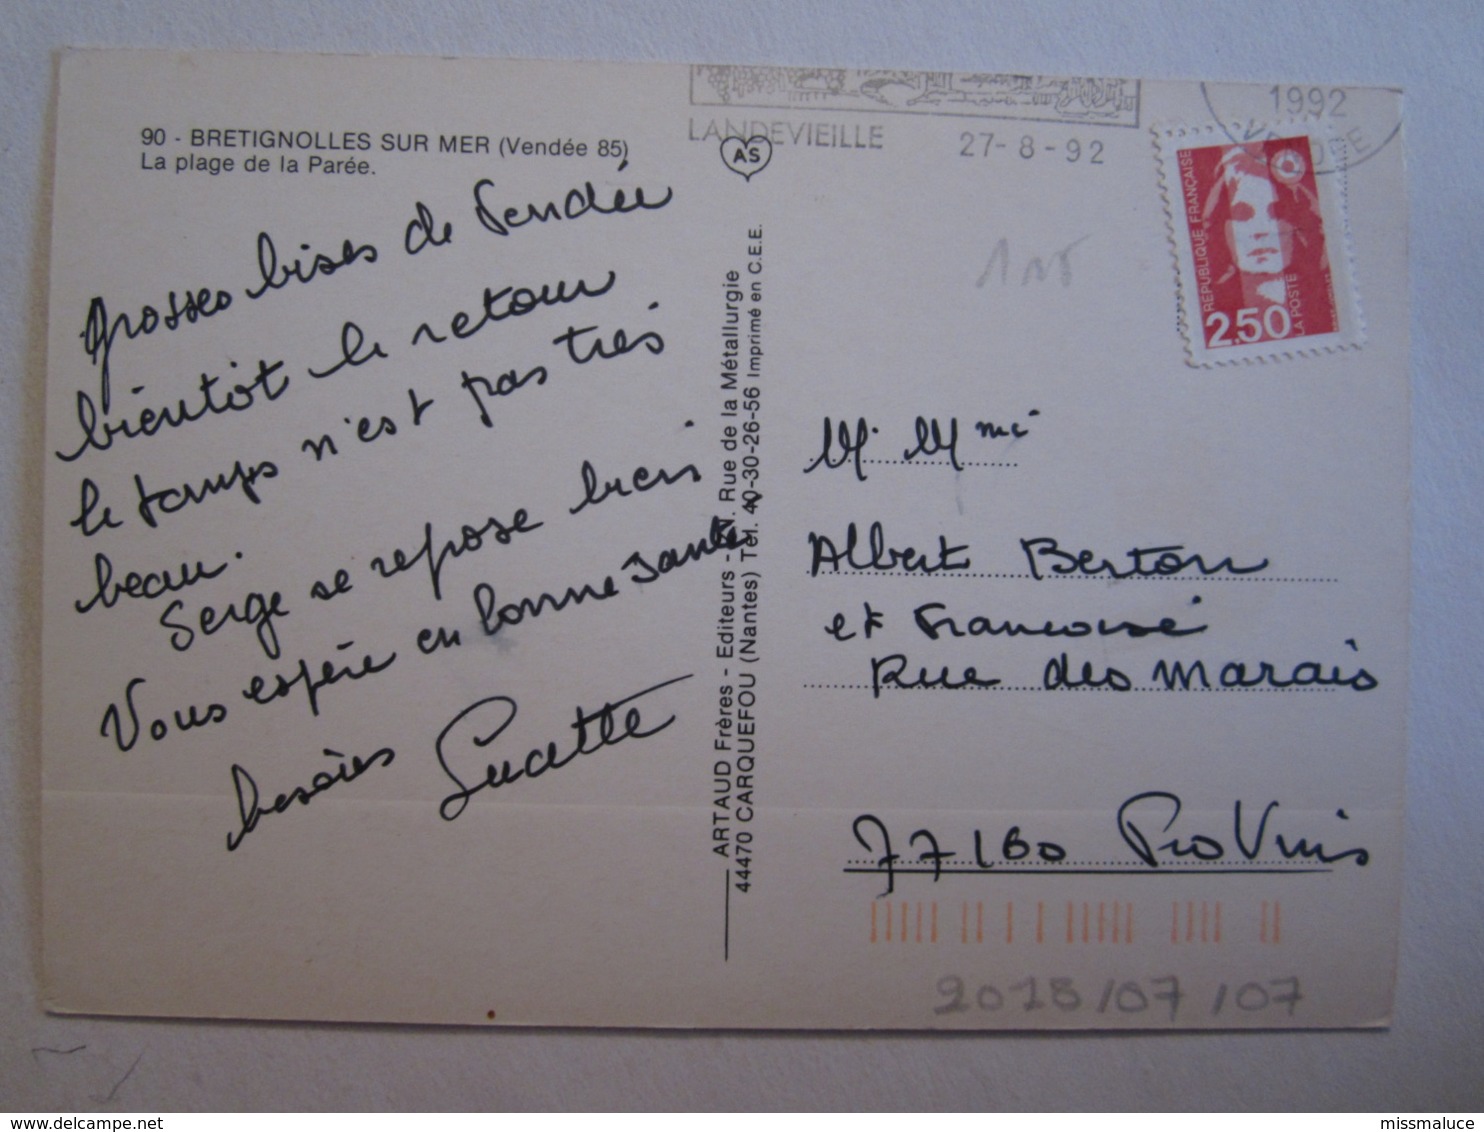 90 - BRETIGNOLLES SUR MER (Vendée 85)
La plage de la Parée.
grosses bises de Vendée
bientôt le retour
le temps n'est pas très
beau.
Serge se repose bien
Vous espère en bonne santé
baisers Lucette
ARTAUD Frères - Editeurs - N. Rue de la Métallurgie
44470 CARQUEFOU (Nantes) Tél. 40-30-26-56 Imprimé en C.E.E.
AS
LANDEVIEILLE 27-8-92
1992
RÉPUBLIQUE FRANÇAISE
2,50
LA POSTE
M. Mme
Albert Berton
et Francoise
Rue des Marais
77160 ProVins
2018/07/07
delcampe.net
missmaluce